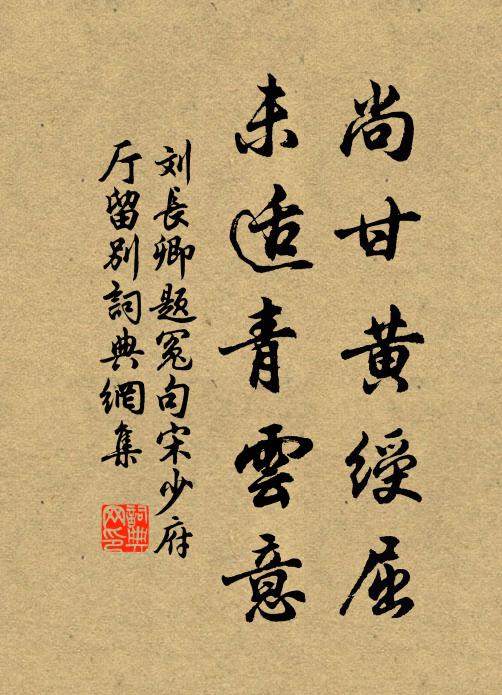 尚甘黄綬屈
未适青雲意
刘長卿題冤句宋少府
厅留别詞典網集
詞典
网印